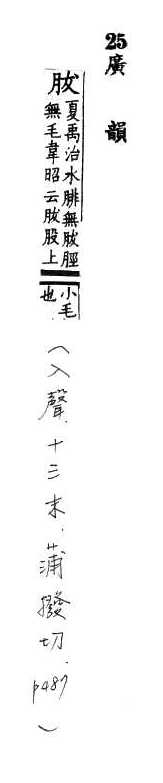 25廣韻
胈夏禹治水腓無胈脛
無毛韋昭云胈股上
小毛
也
（入聲.十三末.蒲撥切.p487）